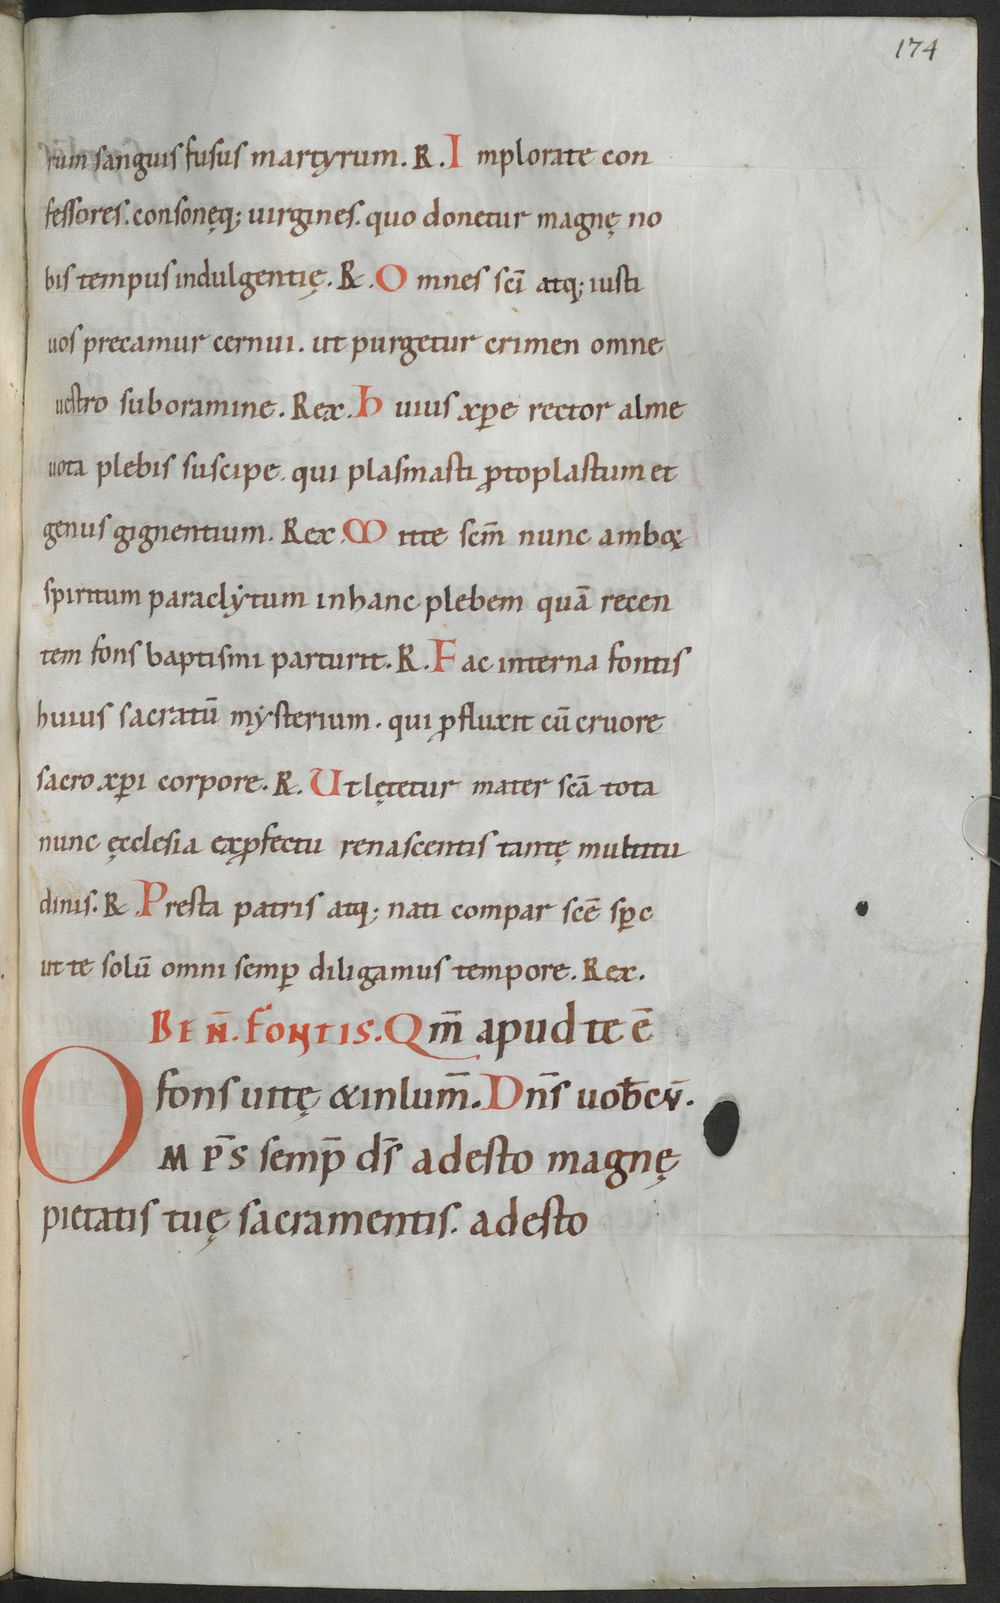 174
rum sanguis fusus martyrum. R. Implorate con
fessores. consonęq; uirgines. quo donetur magnę no
bis tempus indulgentię. R. Omnes sc̄i atq; iusti
uos precamur cernui. ut purgetur crimen omne
uestro sub oramine. Rex. huius xp̄e rector alme
uota plebis suscipe. qui plasmasti ꝓtoplastum et
genus gignentium. Rex. Mitte sc̄m nunc amboꝝ
spiritum paraclẏtum in hanc plebem quā recen
tem fons baptismi parturit. R. Fac interna fontis
huius sacratū mẏsterium. qui ꝓfluxit cū cruore
sacro xp̄i corpore. R. Ut lętetur mater sc̄a tota
nunc ęcclesia ex ꝓfectu renascentis tantę multitu
dinis. R. Presta patris atq; nati compar sc̄e sp̄c
ut te solū omni semꝑ diligamus tempore. Rex.
BEN̄. FONTIS. Qm̄ apud te ē
fons uitę & in lum̄. Dn̄s uob̄cv̄.
OMP̄S semp̄ ds̄ adesto magnę
pietatis tuę sacramentis. adesto